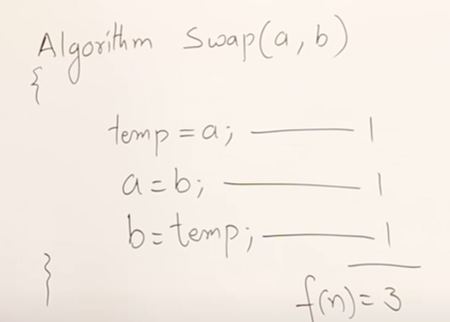 Algorithm Swap(a, b)
{
temp = a; 1
a = b; 1
b = temp; 1
}
f(n) = 3